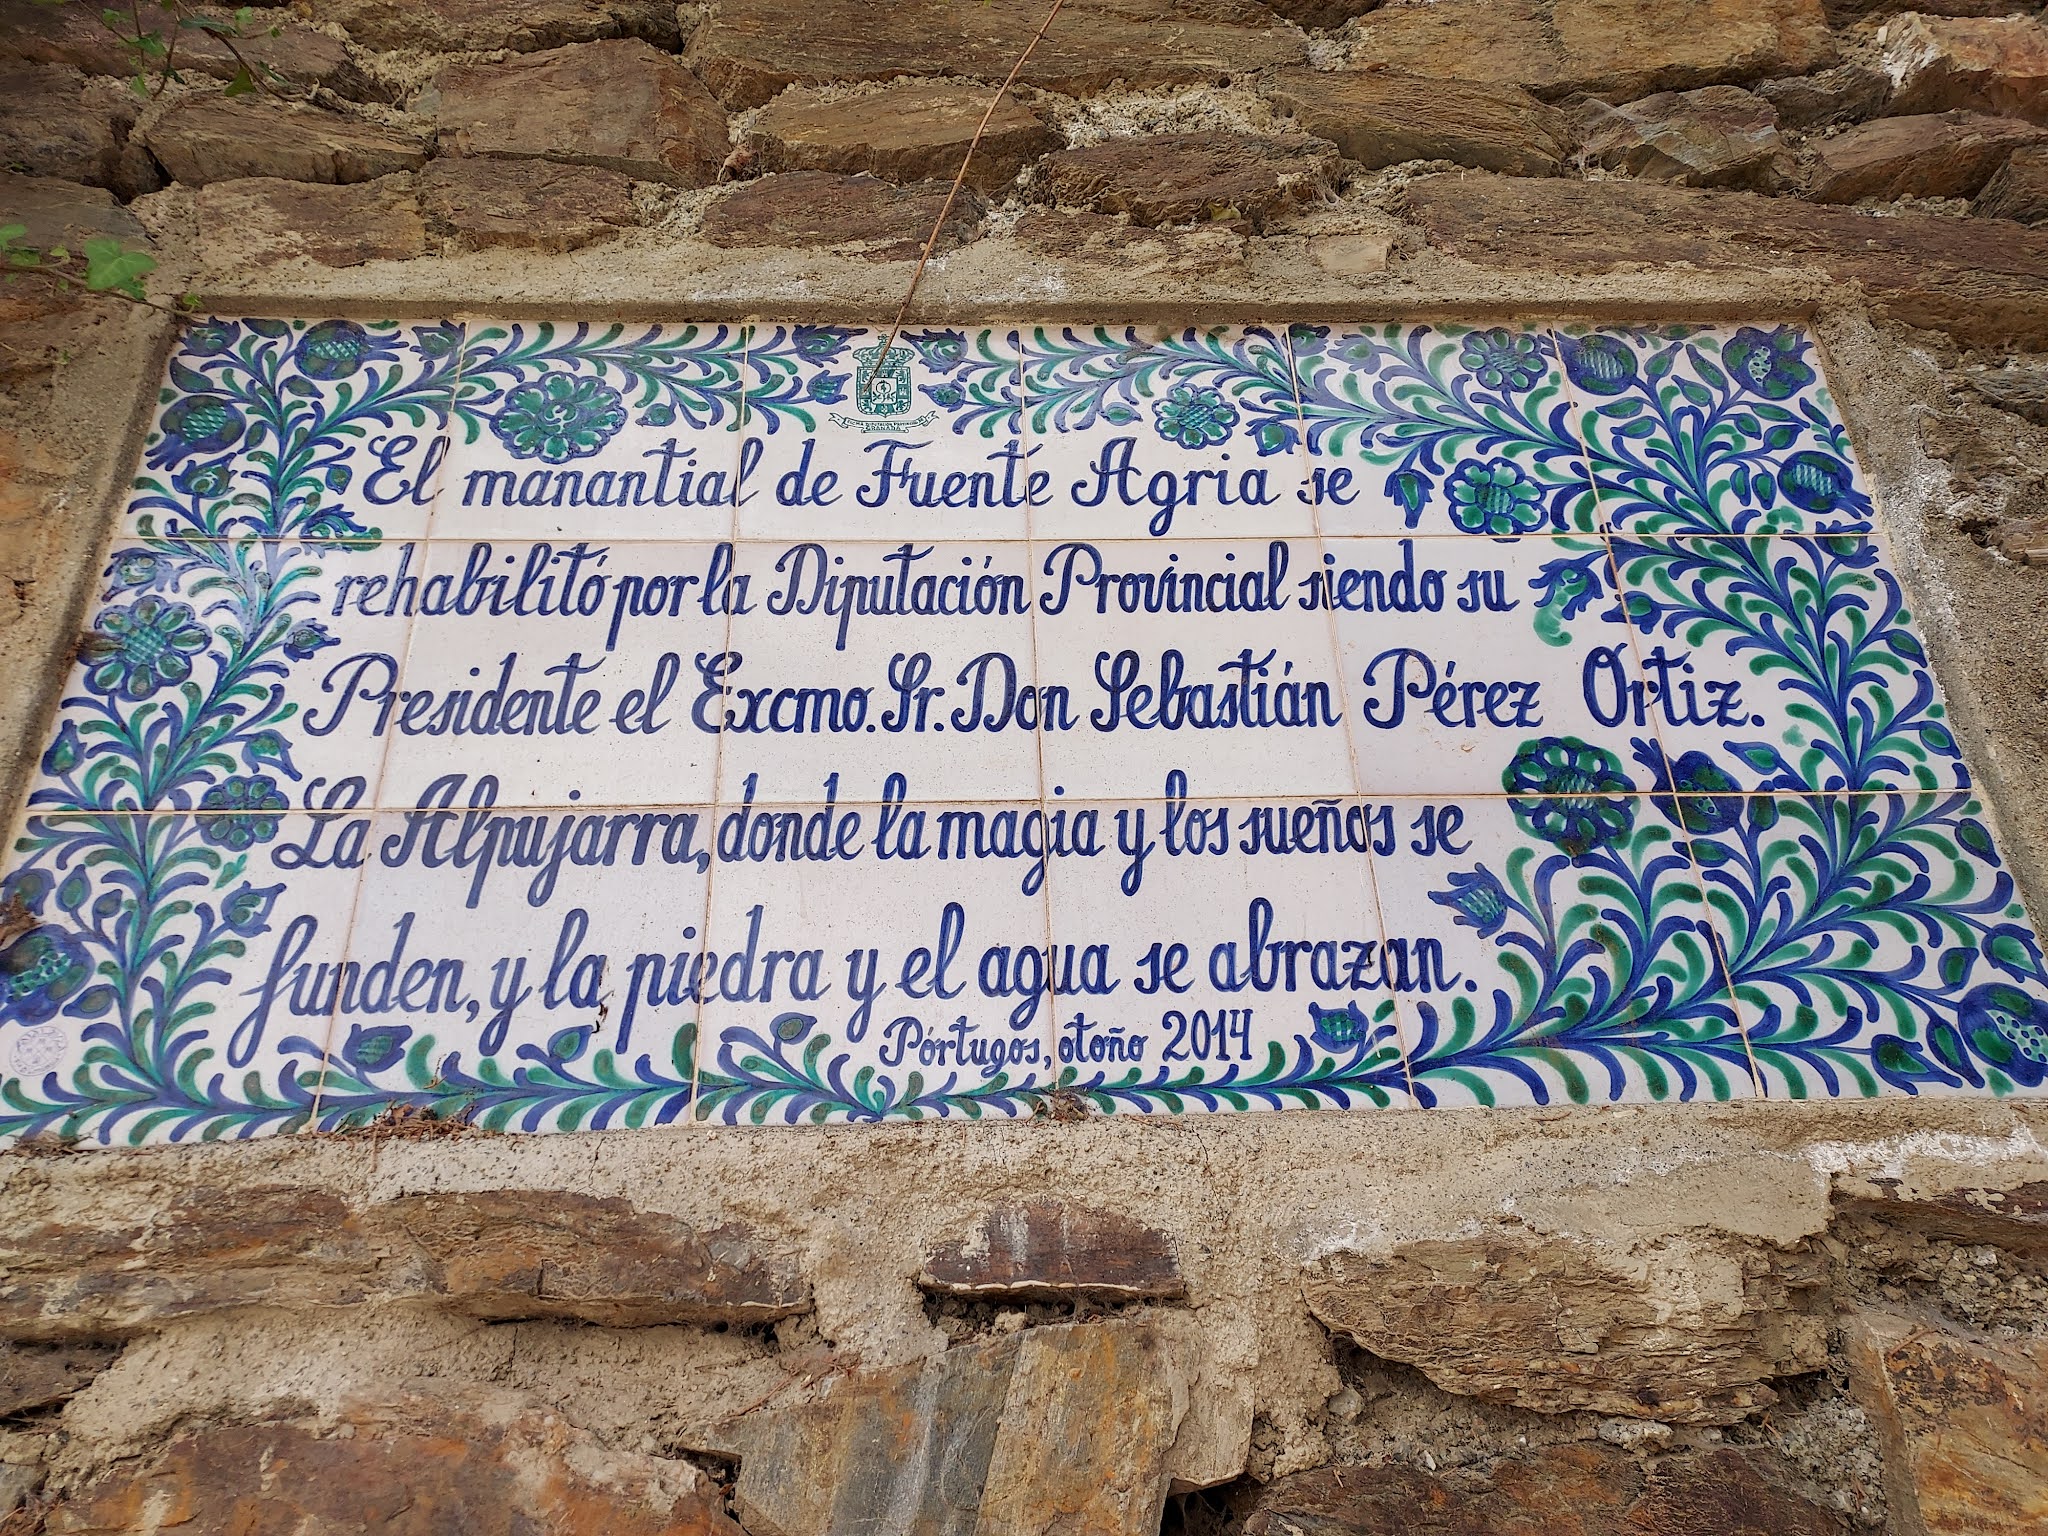 EXCMA. DIPUTACIÓN PROVINCIAL
GRANADA
El manantial de Fuente Agria se
rehabilitó por la Diputación Provincial siendo su
Presidente el Excmo. Sr. Don Sebastián Pérez Ortiz.
La Alpujarra, donde la magia y los sueños se
funden, y la piedra y el agua se abrazan.
Pórtugos, otoño 2014